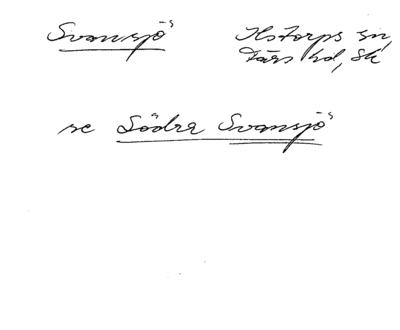 Svansjö Ilstorps sn,
Färs hd, Sk
se Södra Svansjö